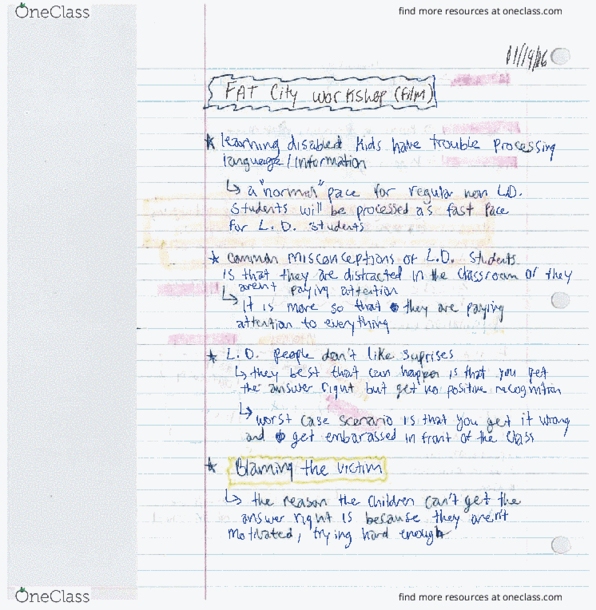 OneClass
find more resources at oneclass.com
FAT City workshop (film)
* learning disabled kids have trouble processing
language/information
↳ a "normal" pace for regular non L.D.
students will be processed as fast pace
for L.D. students
* common misconceptions of L.D. students
is that they are distracted in the classroom or they
aren't paying attention
↳ It is more so that they are paying
attention to everything
* L.D. people don't like suprises
↳ they best that can happen is that you get
the answer right but get no positive recognition
↳ worst case scenario is that you get it wrong
and get embarassed in front of the class
* Blaming the victim
↳ the reason the children can't get the
answer right is because they aren't
motivated, trying hard enough
OneClass
find more resources at oneclass.com